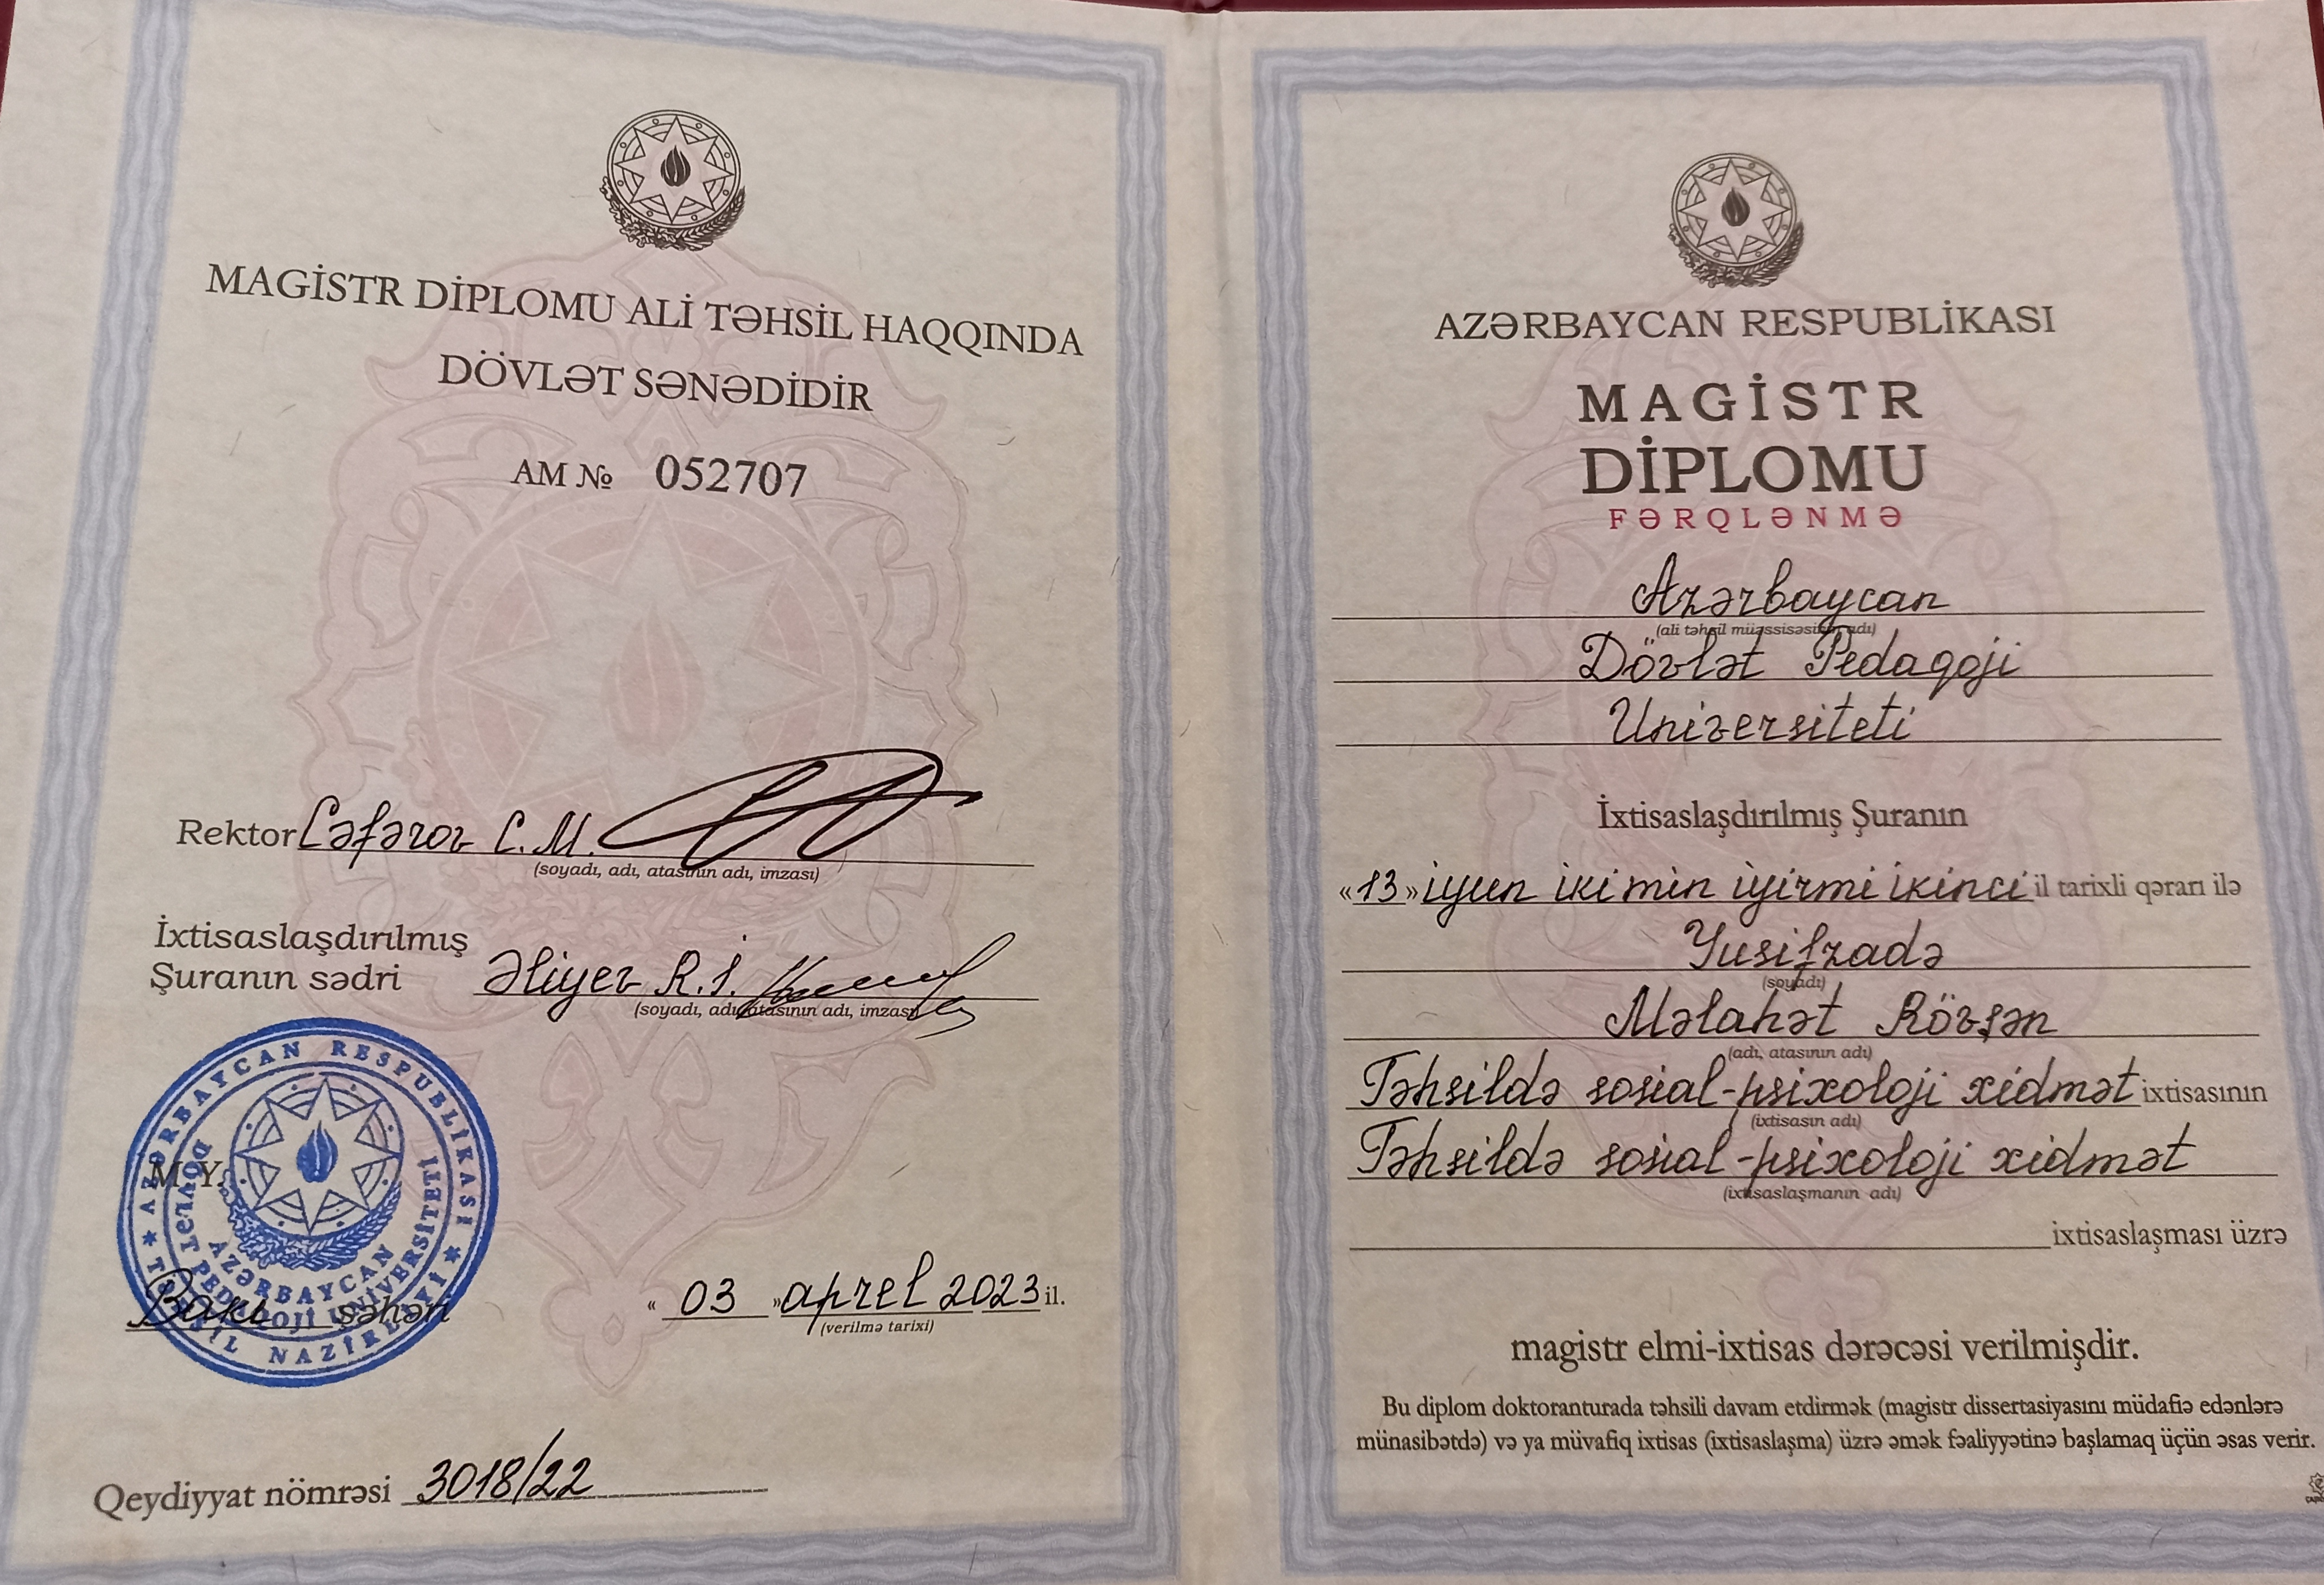 MAGİSTR DİPLOMU ALİ TƏHSİL HAQQINDA
DÖVLƏT SƏNƏDİDİR
AM № 052707
Rektor Cəfərov C.M.
(soyadı, adı, atasının adı, imzası)
İxtisaslaşdırılmış
Şuranın sədri Əliyev R.İ.
(soyadı, adı, atasının adı, imzası)
AZƏRBAYCAN RESPUBLİKASI
TƏHSİL NAZİRLİYİ
AZƏRBAYCAN
DÖVLƏT PEDAQOJİ UNİVERSİTETİ
M.Y.
Bakı şəhəri
« 03 » aprel 2023 il.
(verilmə tarixi)
Qeydiyyat nömrəsi 3018/22
AZƏRBAYCAN RESPUBLİKASI
MAGİSTR
DİPLOMU
FƏRQLƏNMƏ
Azərbaycan
(ali təhsil müəssisəsinin adı)
Dövlət Pedaqoji
Universiteti
İxtisaslaşdırılmış Şuranın
«13» iyun iki min iyirmi ikinci il tarixli qərarı ilə
Yusifzadə
(soyadı)
Məlahət Rövşən
(adı, atasının adı)
Təhsildə sosial-psixoloji xidmət ixtisasının
(ixtisasın adı)
Təhsildə sosial-psixoloji xidmət
(ixtisaslaşmanın adı)
ixtisaslaşması üzrə
magistr elmi-ixtisas dərəcəsi verilmişdir.
Bu diplom doktoranturada təhsili davam etdirmək (magistr dissertasiyasını müdafiə edənlərə
münasibətdə) və ya müvafiq ixtisas (ixtisaslaşma) üzrə əmək fəaliyyətinə başlamaq üçün əsas verir.